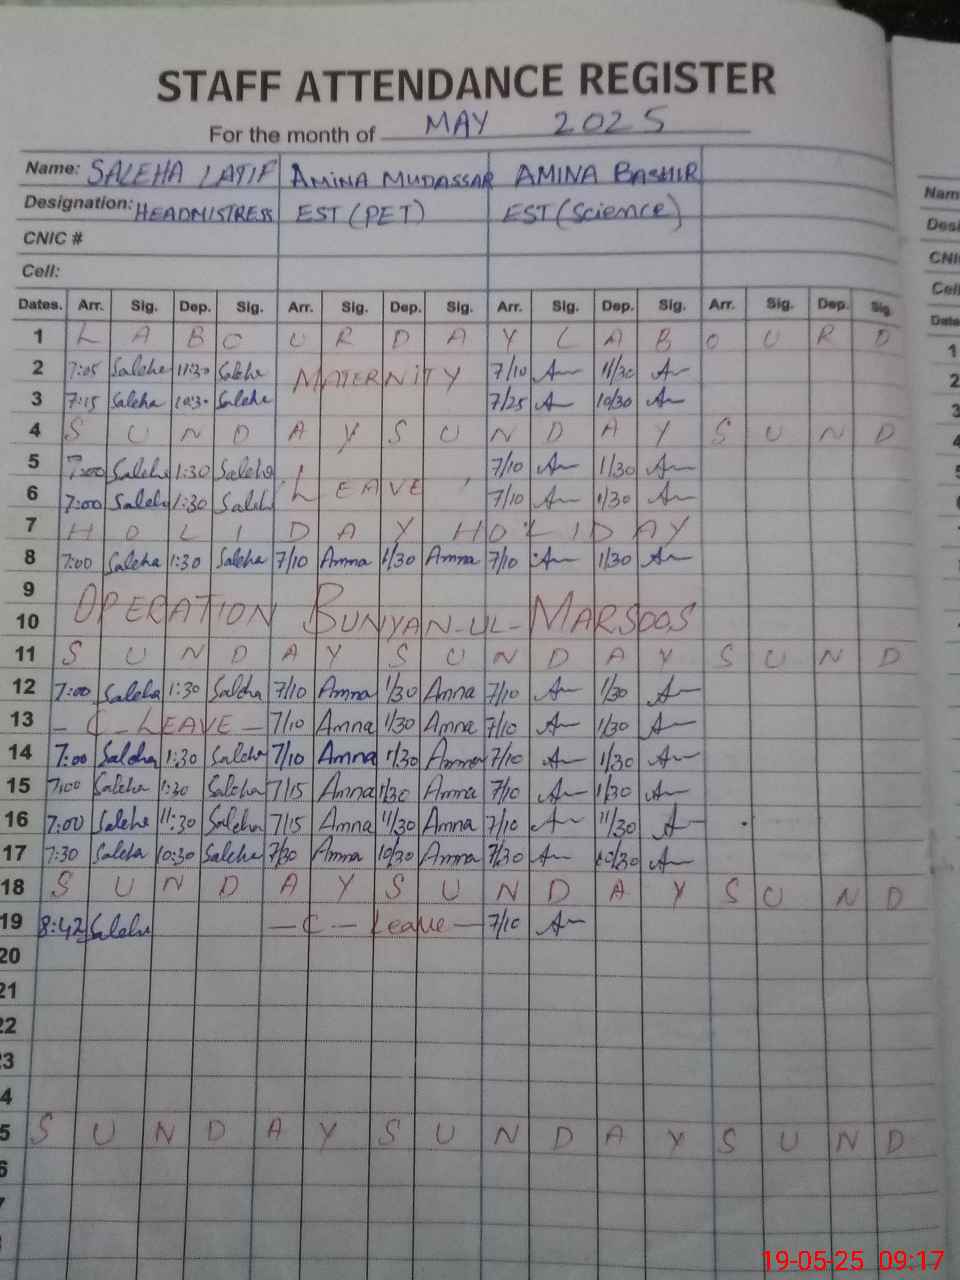 STAFF ATTENDANCE REGISTER
For the month of MAY 2025
Name: SALEHA LATIF AMINA MUDASSAR AMINA BASHIR
Designation: HEADMISTRESS EST (PET) EST (Science)
CNIC #
Cell:
Dates. Arr. Sig. Dep. Sig. Arr. Sig. Dep. Sig. Arr. Sig. Dep. Sig. Arr. Sig. Dep. Sig.
1 L A B O U R D A Y L A B O U R D
2 7:05 Saleha 11:30 Saleha MATERNITY 7/10 11/30
3 7:15 Saleha 10:30 Saleha 7/25 10/30
4 S U N D A Y S U N D A Y S U N D
5 7:00 Saleha 1:30 Saleha 7/10 1/30
6 7:00 Saleha 1:30 Saleha LEAVE 7/10 1/30
7 H O L I D A Y H O L I D A Y
8 7:00 Saleha 1:30 Saleha 7/10 Amna 1/30 Amna 7/10 1/30
9
OPERATION BUNYAN-UL-MARSOOS
10
11 S U N D A Y S U N D A Y S U N D
12 7:00 Saleha 1:30 Saleha 7/10 Amna 1/30 Amna 7/10 1/30
13 - C - LEAVE - 7/10 Amna 1/30 Amna 7/10 1/30
14 7:00 Saleha 1:30 Saleha 7/10 Amna 1/30 Amna 7/10 1/30
15 7:00 Saleha 1:30 Saleha 7/15 Amna 1/30 Amna 7/10 1/30
16 7:00 Saleha 11:30 Saleha 7/15 Amna 11/30 Amna 7/10 11/30
17 7:30 Saleha 10:30 Saleha 7/30 Amna 10/30 Amna 7/30 10/30
18 S U N D A Y S U N D A Y S U N D
19 8:42 Saleha - C - Leave - 7/10
20
21
22
23
4
5 S U N D A Y S U N D A Y S U N D
6
7
Nam
Desi
CNI
Cell
Date
1
2
3
4
5
6
7
8
19-05-25 09:17